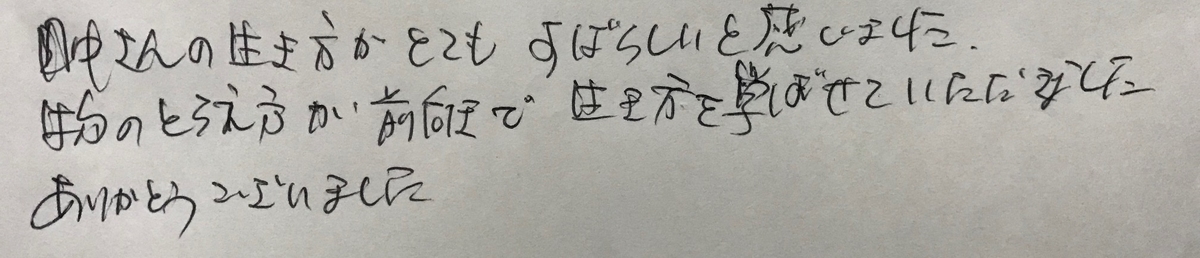 田中さんの生き方がとてもすばらしいと感じました.
物のとらえ方が前向きで 生き方を学ばせていただきました
ありがとうございました